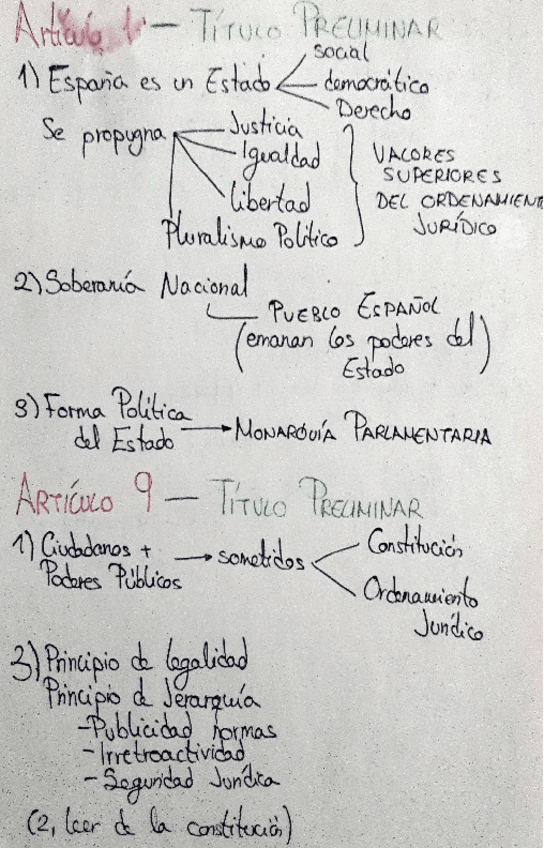 Artículo 1 — TÍTULO PRELIMINAR
social
1) España es un Estado democrático
Derecho
Se propugna Justicia
Igualdad
libertad
Pluralismo Político
VALORES
SUPERIORES
DEL ORDENAMIENTO
JURÍDICO
2) Soberanía Nacional
PUEBLO ESPAÑOL
(emanan los poderes del
Estado)
3) Forma Política
del Estado → MONARQUÍA PARLAMENTARIA
ARTÍCULO 9 — TÍTULO PRELIMINAR
1) Ciudadanos +
Poderes Públicos → sometidos
Constitución
Ordenamiento
Jurídico
3) Principio de legalidad
Principio de Jerarquía
- Publicidad normas
- Irretroactividad
- Seguridad Jurídica
(2, leer de la constitución)